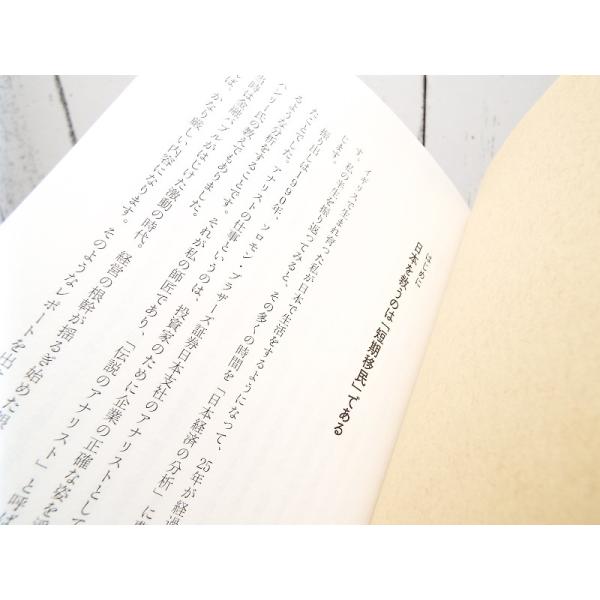 はじめに
日本を救うのは「短期移民」である
イギリスで生まれ育った私が日本で生活をするようになって、25年が経過
す。私の半生を振り返ってみると、その多くの時間を「日本経済の分析」に
じます。
振り出しは1990年、ソロモン・ブラザーズ証券日本支社のアナリストとして
たことでした。アナリストの仕事というのは、投資家のために企業の正確な姿を
るような分析をすることです。それが私の師匠であり、「伝説のアナリスト」と呼ば
ハンリー氏の教えでもありました。
当時は金融バブルがはじけた激動の時代。経営の根幹が揺るぎ始めた銀
ば、かなり厳しい内容になります。そのようなレポートを出